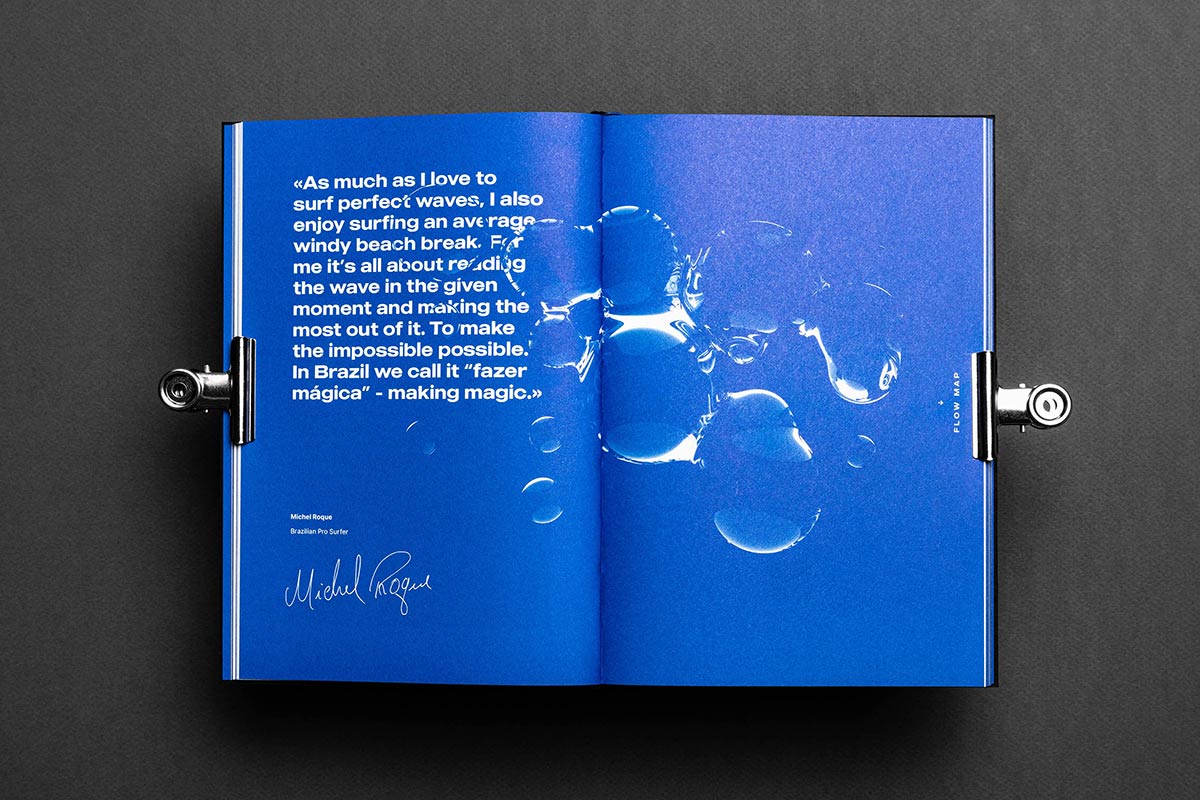 «As much as I love to
surf perfect waves, I also
enjoy surfing an average
windy beach break. For
me it’s all about reading
the wave in the given
moment and making the
most out of it. To make
the impossible possible.
In Brazil we call it “fazer
mágica” - making magic.»
Michel Roque
Brazilian Pro Surfer
Michel Roque
↓ FLOW MAP